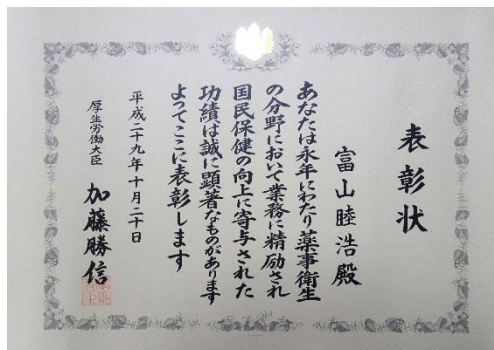 表彰状
富山睦浩殿
あなたは永年にわたり薬事衛生
の分野において業務に精励され
国民保健の向上に寄与された
功績は誠に顕著なものがあります
よってここに表彰します
平成二十九年十月二十日
厚生労働大臣 加藤勝信